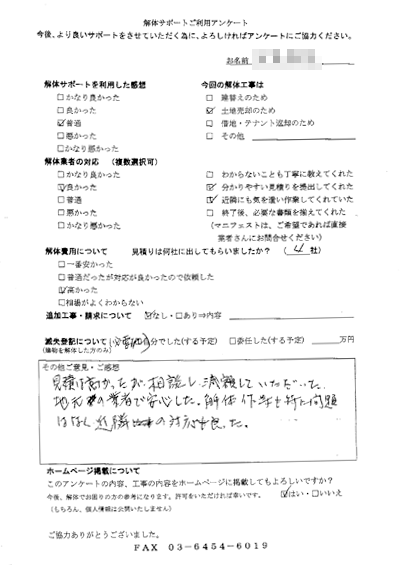 解体サポートご利用アンケート
今後、より良いサポートをさせていただく為に、よろしければアンケートにご協力ください。
お名前
解体サポートを利用した感想
□かなり良かった
□良かった
☑普通
□悪かった
□かなり悪かった
今回の解体工事は
□ 建替えのため
☑ 土地売却のため
□ 借地・テナント返却のため
□ その他
解体業者の対応 (複数選択可)
□かなり良かった
☑良かった
□普通
□悪かった
□かなり悪かった
□ わからないことも丁寧に教えてくれた
☑ 分かりやすい見積りを提出してくれた
☑ 近隣にも気を遣い作業してくれていた
□ 終了後、必要な書類を揃えてくれた
(マニフェストは、ご希望であれば直接
業者さんにお問合せください)
解体費用について 見積りは何社に出してもらいましたか? ( 4 社)
□一番安かった
□普通だったが対応が良かったので依頼した
☑高かった
□相場がよくわからない
追加工事・請求について ☑なし・□あり⇒内容
滅失登記について 自分でした(する予定) □委任した(する予定) 万円
(建物を解体した方のみ)
その他ご意見・ご感想
見積は高かったが相談し減額していただいた。
地元の業者で安心した。解体作業も特に問題
はなく近隣の対応も良かった。
ホームページ掲載について
このアンケートの内容、工事の内容をホームページに掲載してもよろしいですか?
今後、解体でお困りの方の参考になります。許可をいただければ幸いです。 ☑はい・□いいえ
(もちろん、個人情報は公開いたしません)
ご協力ありがとうございました。
FAX 03-6454-6019